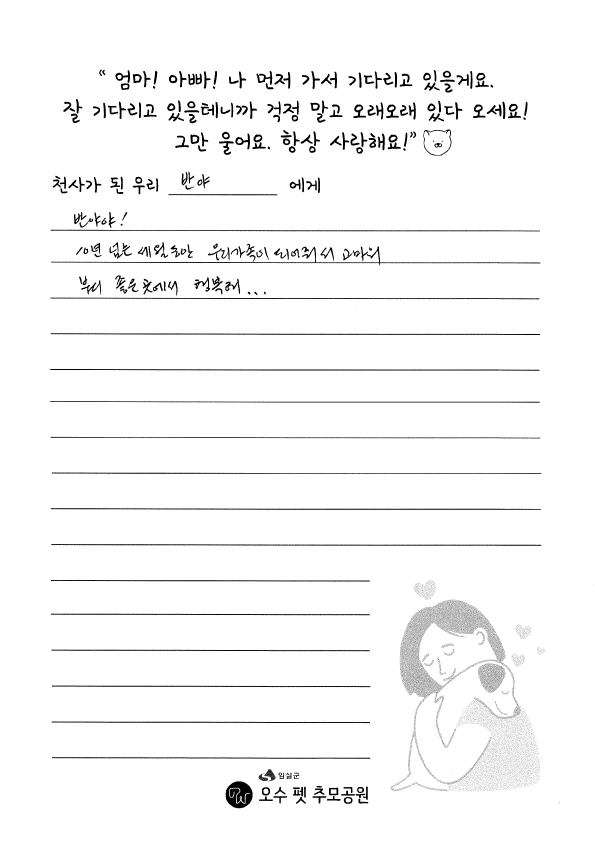 “ 엄마! 아빠! 나 먼저 가서 기다리고 있을게요.
잘 기다리고 있을테니까 걱정 말고 오래오래 있다 오세요!
그만 울어요. 항상 사랑해요!”
천사가 된 우리 반야 에게
반야야!
10년 넘는 세월동안 우리가족이 되어줘서 고마워
부디 좋은곳에서 행복해...
임실군
오수 펫 추모공원